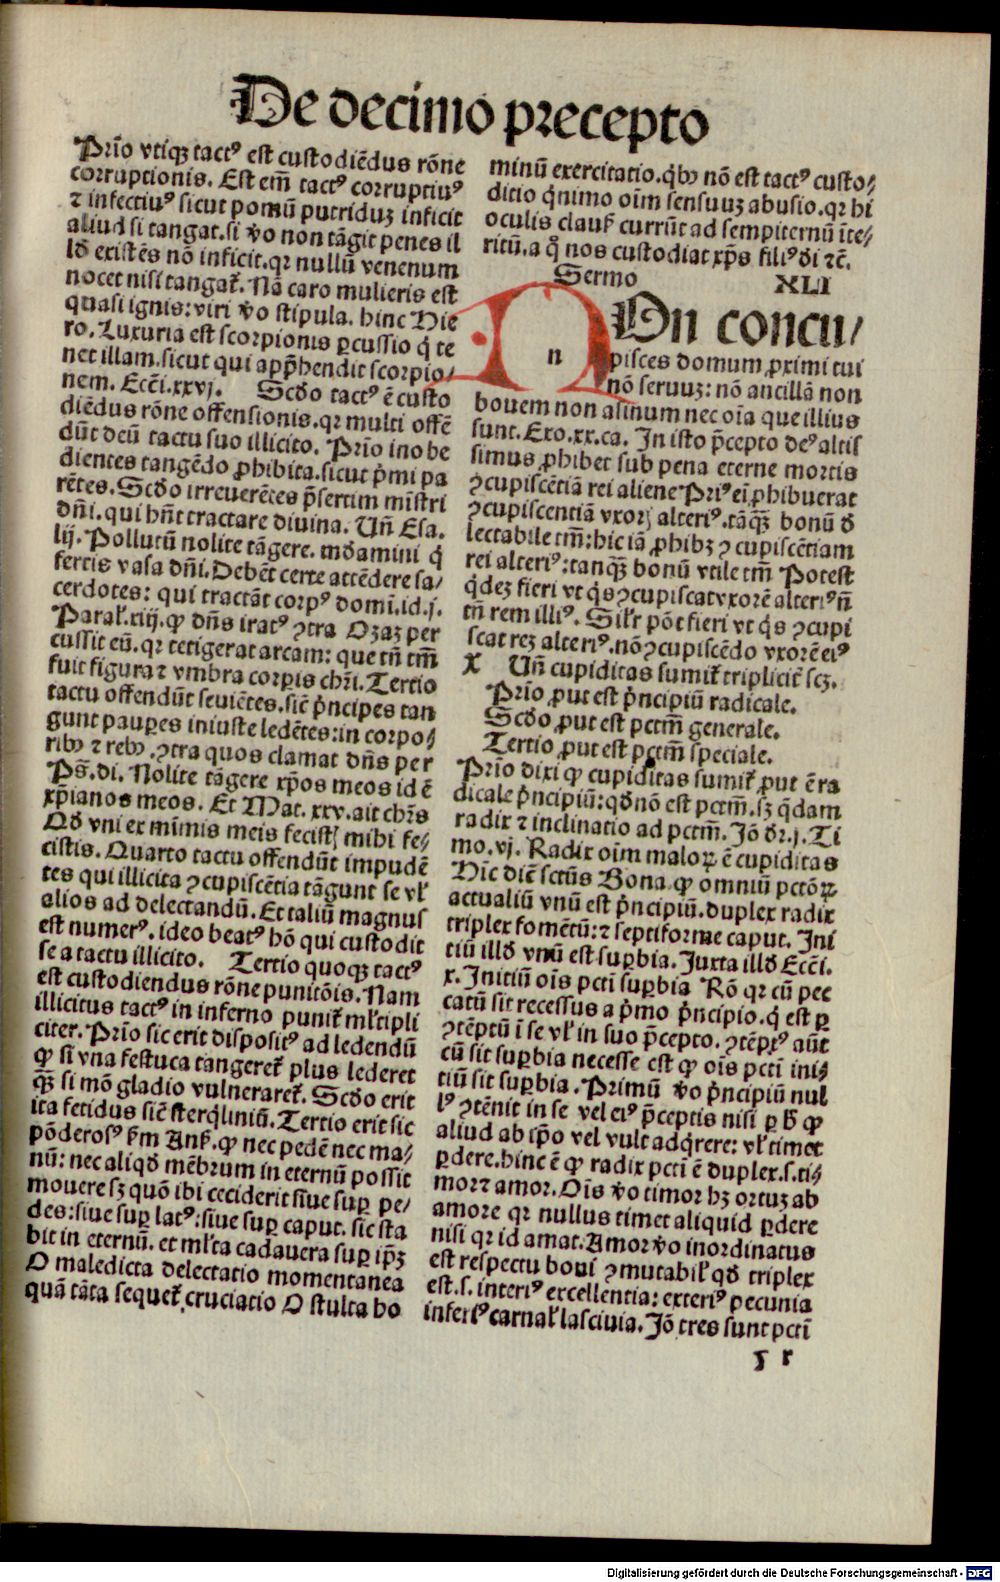 De decimo precepto
Prīo vtiqꝫ tactꝰ est custodiēdus rōne
corruptionis. Est em̄ tactꝰ corruptiuꝰ
⁊ infectiuꝰ sicut pomū putriduꝫ inficit
aliud si tangat. si v̄o non tāgit penes il
lđ existēs nō inficit. qr nullū venenum
nocet nisi tangat̄. Nā caro mulieris est
quasi ignis: viri v̄o stipula. hinc Hie
ro. Luxuria est scorpionis ꝑcussio q̇ te
net illam. sicut qui app̄hendit scorpio/
nem. Ecci. xxvj. Scđo tactꝰ ē custo
diēdus rōne offensionis. qr multi offē
dūt deū tactu suo illicito. Prīo inobe
dientes tangēdo ꝓhibita. sicut ṗmi pa
rētes. Scđo irreuerētes p̄sertim mīstri
dn̄i. qui hn̄t tractare diuina. Un̄ Esa.
lij. Pollutū nolite tāgere. mūdamini q̇
fertis vasa dn̄i. Debēt certe attēdere sa/
cerdotes: qui tractāt corpꝰ domī. id. j.
Paral̄. xiij. ꝙ dn̄s iratꝰ ꝯtra Ozaꝫ per
cussit eū. qr tetigerat arcam: que tn̄ tm̄
fuit figura ⁊ vmbra corꝑis chr̄i. Tertio
tactu offendūt seuiētes. sic̄ ṗncipes tan
gunt pauꝑes iniuste ledētes: in corpo/
ribꝫ ⁊ rebꝫ. ꝯtra quos clamat dn̄s per
Ps̄. di. Nolite tāgere xp̄os meos id ē
xp̄ianos meos. Et Mat. xxv. ait chr̄s
Qđ vni ex mīmis meis fecistꝭ mihi fe/
cistis. Quarto tactu offendūt impudē
tes qui illicita ꝯcupiscētia tāgunt se vl̄
alios ad delectandū. Et taliū magnus
est numerꝰ. ideo beatꝰ hō qui custodit
se a tactu illicito. Tertio quoqꝫ tactꝰ
est custodiendus rōne punitōis. Nam
illicitus tactꝰ in inferno punit̄ ml̄tipli
citer. Prīo sic erit dispositꝰ ad ledendū
ꝙ si vna festuca tangeret̄ plus lederet
qꝫ̄ si mō gladio vulneraret̄. Scđo erit
ita fetidus sic̄ sterq̇liniū. Tertio erit sic
pōderosꝰ ẜm Anẜ. ꝙ nec pedē nec ma/
nū: nec aliqđ mēbrum in eternū possit
mouere sꝫ quō ibi ceciderit siue suꝑ pe/
des: siue suꝑ latꝰ: siue suꝑ caput. sic sta
bit in eternū. et ml̄ta cadauera suꝑ ip̄ꝫ
O maledicta delectatio momentanea
quā tāta sequet̄ cruciatio O stulta ho
minū exercitatio. q̇bꝫ nō est tactꝰ custo/
ditio q̇nimo oīm sensuuꝫ abusio. qr hi
oculis clauẜ currūt ad sempiternū īte/
ritū. a q̊ nos custodiat xp̄s filiꝰ đi ⁊c̄.
Sermo XLI
NOn concu/
n
pisces domum ꝓximi tui
nō seruuꝫ: nō ancillā non
bouem non asinum nec oīa que illius
sunt. Exo. xx. ca. In isto p̄cepto deꝰ altis
simus ꝓhibet sub pena eterne mortis
ꝯcupiscētiā rei aliene Priꝰ eī ꝓhibuerat
ꝯcupiscentiā vxorꝭ alteriꝰ. tāqꝫ̄ bonū đ
lectabile tm̄: hic iā ꝓhibꝫ ꝯcupiscētiam
rei alteriꝰ: tanqꝫ̄ bonū vtile tm̄ Potest
q̇deꝫ fieri vt q̇s ꝯcupiscat vxorē alteriꝰ n̄
tn̄ rem illiꝰ. Sil̄r pōt fieri vt q̇s ꝯcupi
scat reꝫ alteriꝰ. nō ꝯcupiscēdo vxorē eiꝰ
X Un̄ cupiditas sumit̄ triplicit̄ scꝫ.
Prīo ꝓut est ṗncipiū radicale.
Scđo ꝓut est pctm̄ generale.
Tertio ꝓut est pctm̄ speciale.
Prīo dixi ꝙ cupiditas sumit̄ ꝓut ē ra
dicale ṗncipiū: qđ nō est pctm̄. sꝫ q̇dam
radix ⁊ inclinatio ad pctm̄. Jō đr. j. Ti
mo. vj. Radix oīm maloꝝ ē cupiditas
Hic dic̄ sctūs Bona. ꝙ omniū pctōꝝ
actualiū vnū est ṗncipiū. duplex radix
triplex fomētū: ⁊ septiforme caput. Ini
tiū illđ vnū est suꝑbia. Juxta illđ Ecci.
x. Initiū oīs pcti suꝑbia Rō qr cū pec
catū sit recessus a ṗmo ṗncipio. q̇ est ꝑ
ꝯtēptū ī se vl̄ in suo p̄cepto. ꝯtēptꝰ aūt
cū sit suꝑbia necesse est ꝙ oīs pcti ini/
tiū sit suꝑbia. Primū v̄o ṗncipiū nul
lꝰ ꝯtēnit in se vel eiꝰ p̄ceptis nisi ꝑ h̄ ꝙ
aliud ab ip̄o vel vult adq̇rere: vl̄ timet
ꝑdere. hinc ē ꝙ radix pcti ē duplex. s. ti/
mor ⁊ amor. Oīs v̄o timor hꝫ ortuꝫ ab
amore qr nullus timet aliquid ꝑdere
nisi qr id amat. Amor v̄o inordinatus
est respectu boni ꝯmutabil̄ qđ triplex
est. s. interiꝰ excellentia: exteriꝰ pecunia
inferiꝰ carnal̄ lasciuia. Jō tres sunt pcti
Digitalisierung gefördert durch die Deutsche Forschungsgemeinschaft - DFG